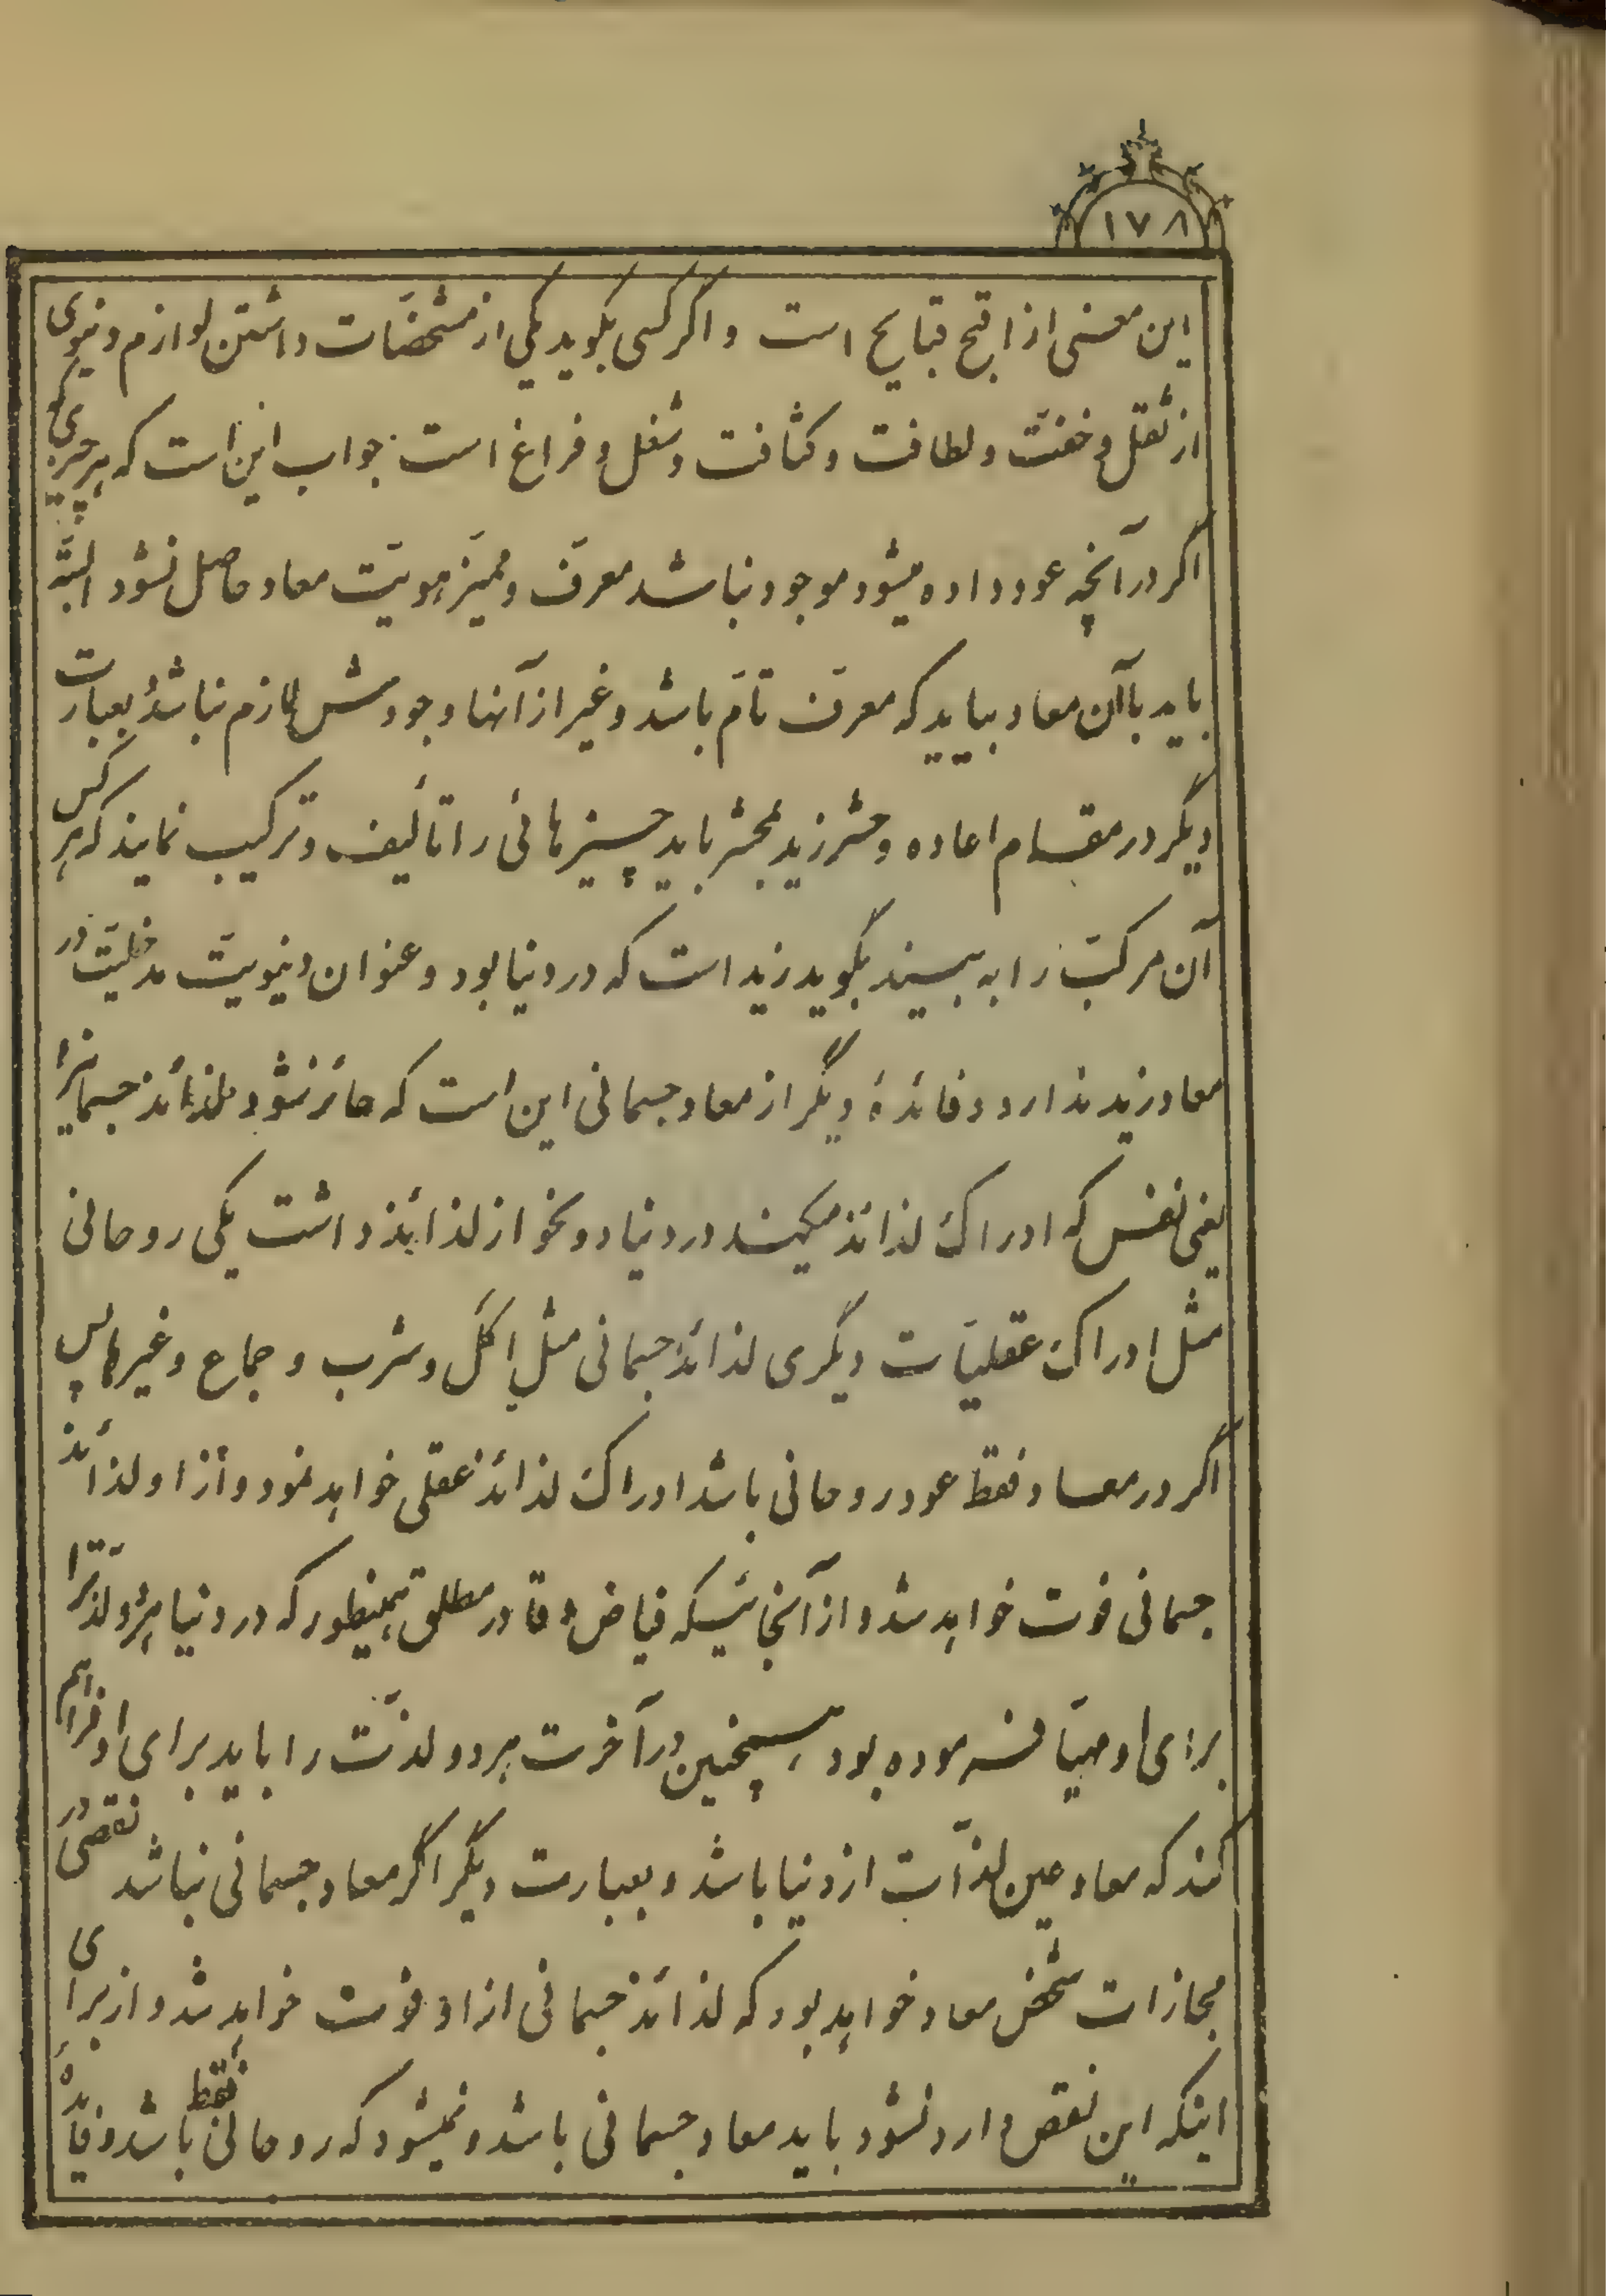 ۱۷۸
این معنی از اقبح قبایح است و اگر کسی بگوید یکی از مشخصات داشتن لوازم دنیوی
از ثقل و خفت و لطافت و کثافت و شغل و فراغ است جواب این است که هر چیزی که
اگر در آنچه عود داده میشود موجود نباشد معرف و ممیز هویت معاد حاصل نشود البته
باید با آن معاد بیاید که معرف تام باشد و غیر از آنها وجودش لازم نباشد بعبارت
دیگر در مقام اعاده و حشر زید بمحشر باید چیزهائی را تألیف و ترکیب نمایند که هر کس
آن مرکب را به بیند بگوید زید است که در دنیا بود و عنوان دنیویت مدخلیت در
معاد زید ندارد و فائدهٔ دیگر از معاد جسمانی این است که حائز نشود لذائذ جسمانیرا
یعنی نفس که ادراک لذائذ میکند در دنیا دو نحو از لذائذ داشت یکی روحانی
مثل ادراک عقلیات دیگری لذائذ جسمانی مثل اکل و شرب و جماع و غیرها پس
اگر در معاد فقط عود روحانی باشد ادراک لذائذ عقلی خواهد نمود و از او لذائذ
جسمانی فوت خواهد شد و از آنجائیکه فیاض و قادر مطلق همینطور که در دنیا هر دو لذترا
برای او مهیا فرموده بود همچنین در آخرت هر دو لذت را باید برای او فراهم
کند که معاد عین لذات از دنیا باشد و بعبارت دیگر اگر معاد جسمانی نباشد نقصی در
مجازات شخص معاد خواهد بود که لذائذ جسمانی از او فوت خواهد شد و از برای
اینکه این نقص وارد نشود باید معاد جسمانی باشد و نمیشود که روحانی فقط باشد و فائدهٔ